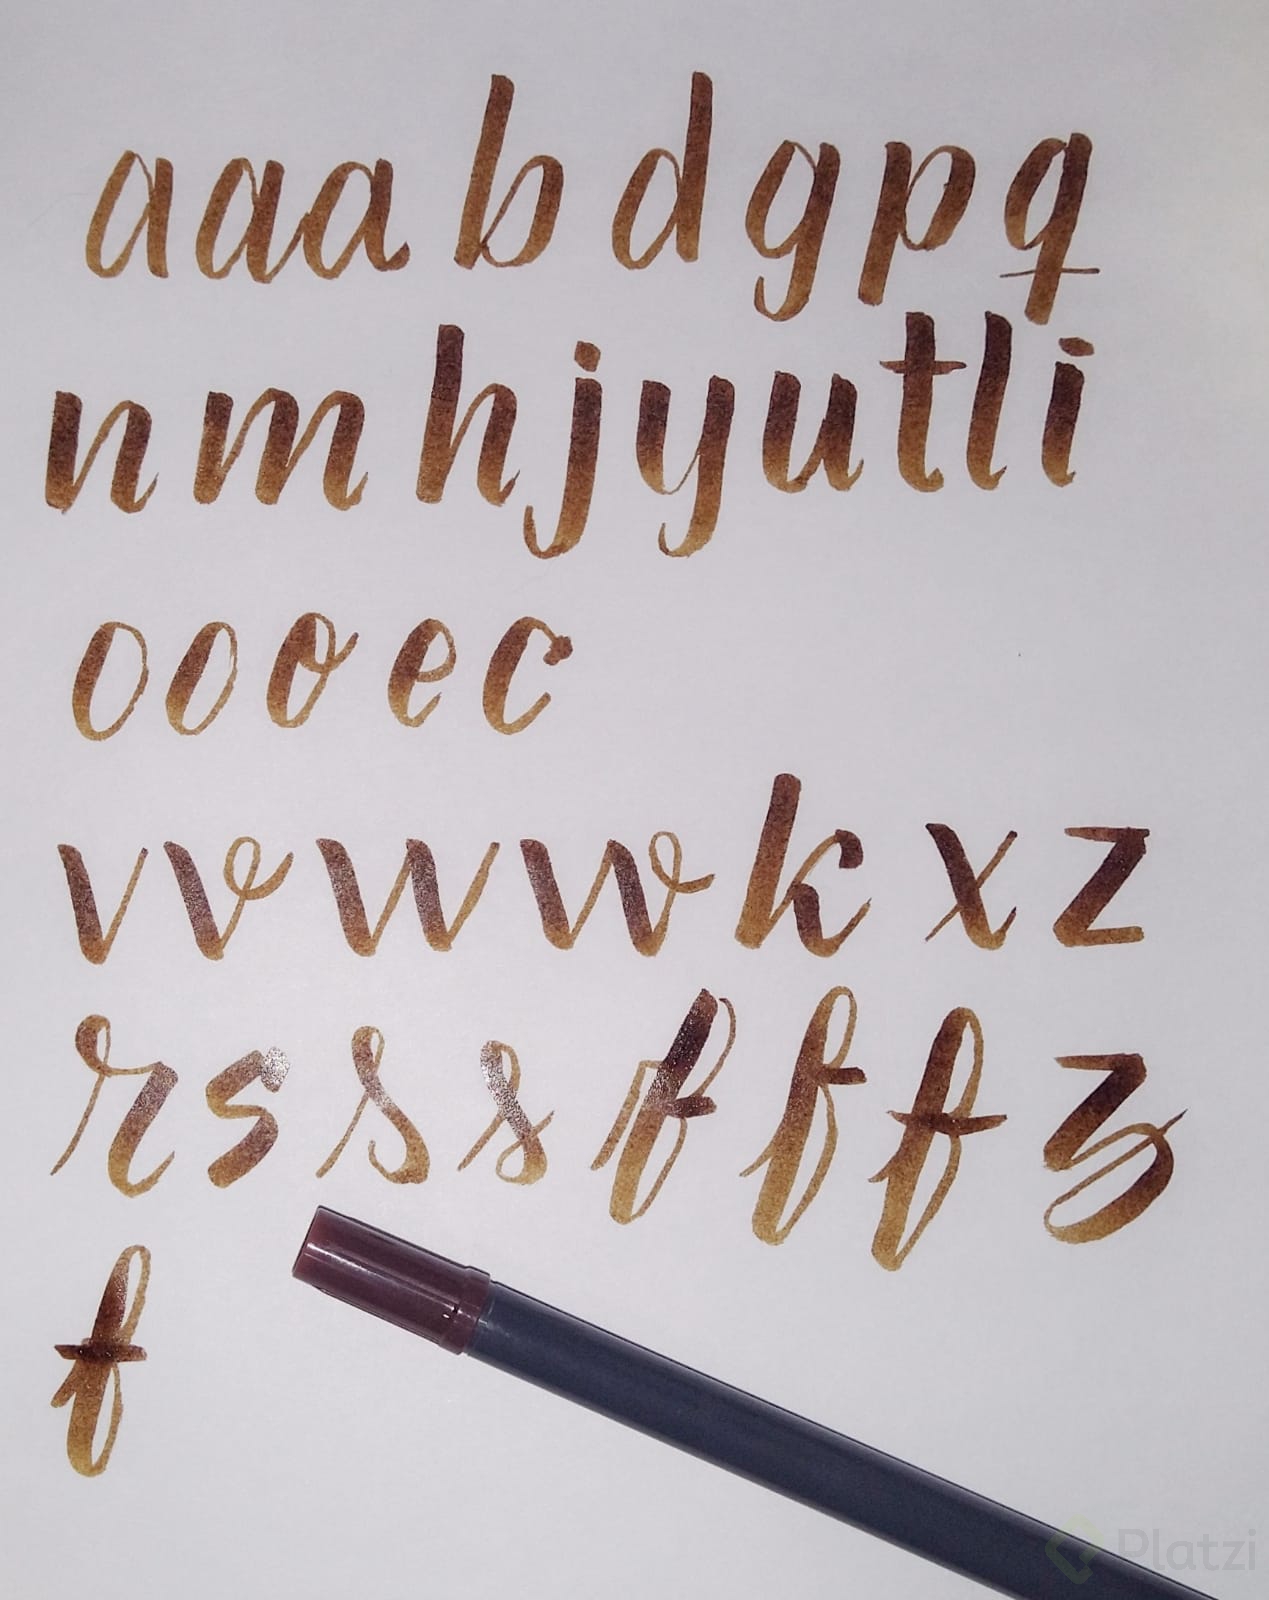 aaa b d g p q
n m h j y u t l i
o o o e c
v v w w k x z
r s s s f f f z
f
Platzi